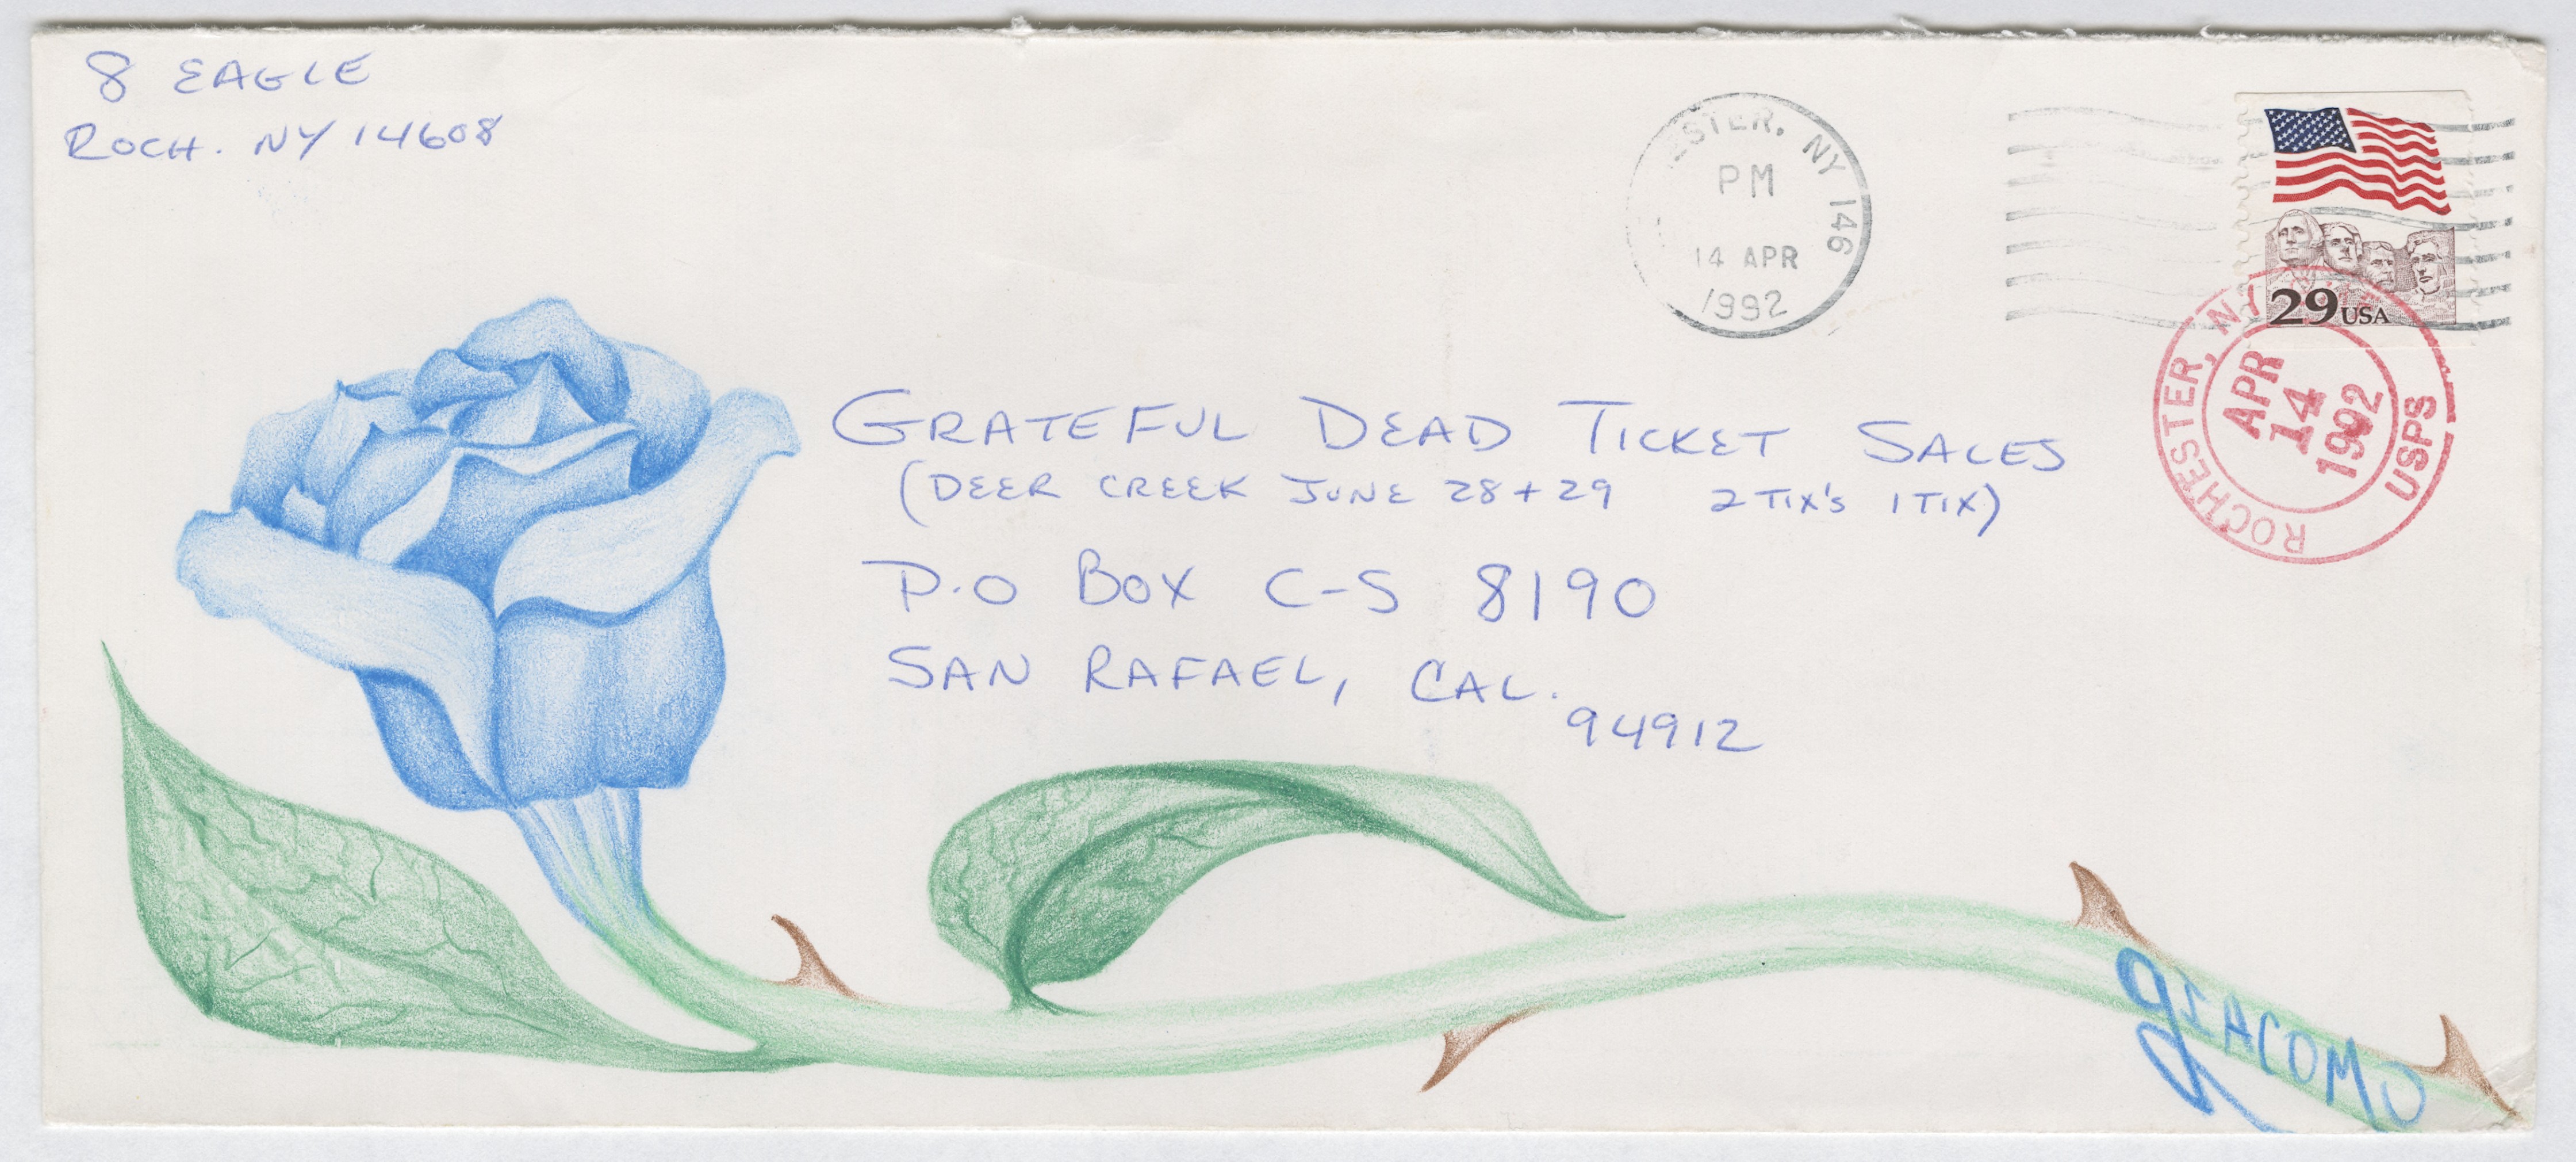 8 EAGLE
ROCH. NY 14608
ESTER, NY 146
PM
14 APR
1992
29 USA
ROCHESTER, NY
APR
14
1992
USPS
GRATEFUL DEAD TICKET SALES
(DEER CREEK JUNE 28 + 29 2 TIX's 1 TIX)
P.O BOX C-S 8190
SAN RAFAEL, CAL.
94912
gIACOMO